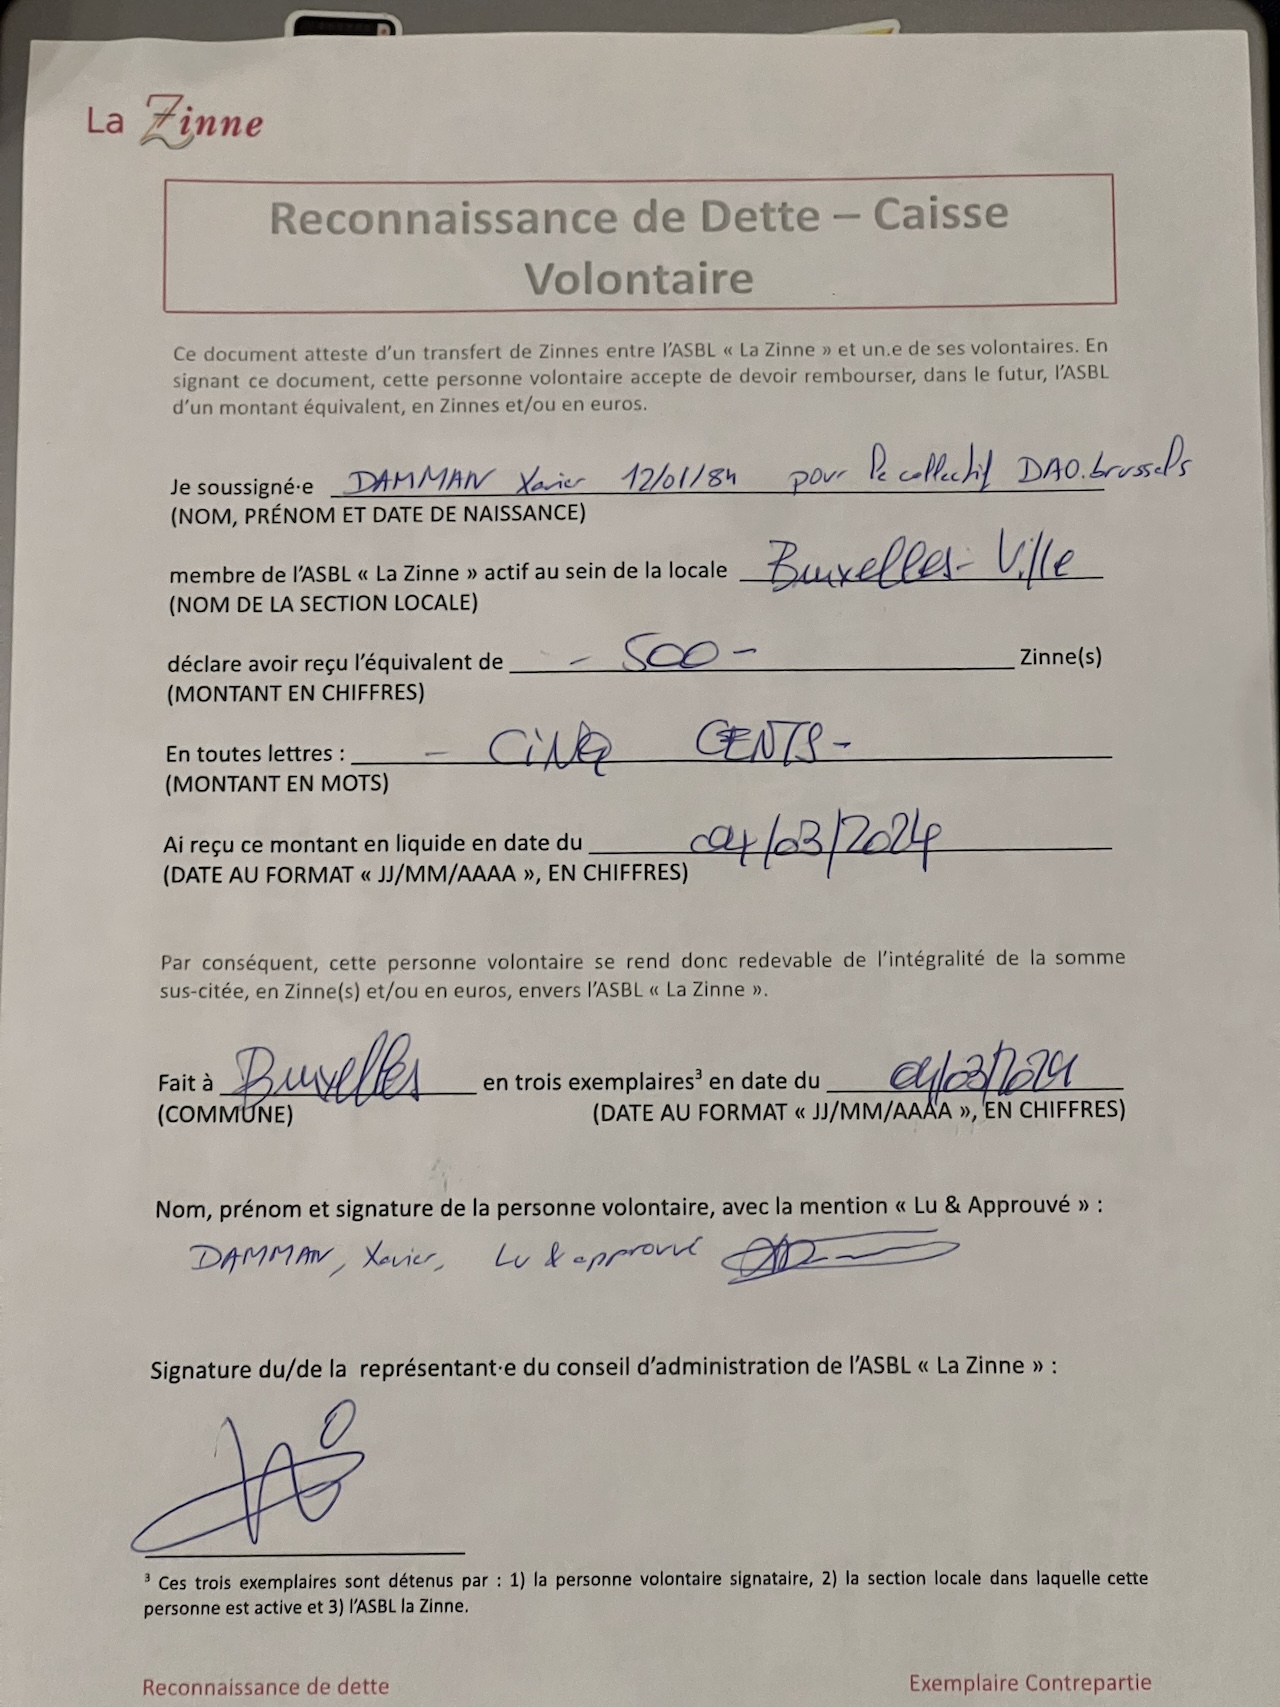 La Zinne
Reconnaissance de Dette – Caisse
Volontaire
Ce document atteste d'un transfert de Zinnes entre l'ASBL « La Zinne » et un.e de ses volontaires. En
signant ce document, cette personne volontaire accepte de devoir rembourser, dans le futur, l'ASBL
d'un montant équivalent, en Zinnes et/ou en euros.
Je soussigné·e DAMMAN Xavier 12/01/84 pour le collectif DAO.brussels
(NOM, PRÉNOM ET DATE DE NAISSANCE)
membre de l'ASBL « La Zinne » actif au sein de la locale Bruxelles-Ville
(NOM DE LA SECTION LOCALE)
déclare avoir reçu l'équivalent de - 500 - Zinne(s)
(MONTANT EN CHIFFRES)
En toutes lettres : - CINQ CENTS -
(MONTANT EN MOTS)
Ai reçu ce montant en liquide en date du 04/03/2024
(DATE AU FORMAT « JJ/MM/AAAA », EN CHIFFRES)
Par conséquent, cette personne volontaire se rend donc redevable de l'intégralité de la somme
sus-citée, en Zinne(s) et/ou en euros, envers l'ASBL « La Zinne ».
Fait à Bruxelles en trois exemplaires³ en date du 04/03/2024
(COMMUNE) (DATE AU FORMAT « JJ/MM/AAAA », EN CHIFFRES)
Nom, prénom et signature de la personne volontaire, avec la mention « Lu & Approuvé » :
DAMMAN, Xavier, Lu & approuvé
Signature du/de la représentant·e du conseil d'administration de l'ASBL « La Zinne » :
³ Ces trois exemplaires sont détenus par : 1) la personne volontaire signataire, 2) la section locale dans laquelle cette
personne est active et 3) l'ASBL la Zinne.
Reconnaissance de dette Exemplaire Contrepartie